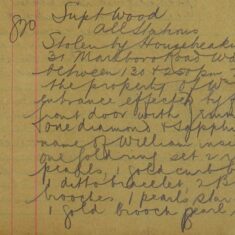 820 Supt Wood
All Stations
Stolen by Housebreaking
31 Marlboro Road
between 1.30 & 2.50 pm
the property of
entrance effected by
front door with
one diamond & Sapphire
name of William
one gold ring set 2
pearls, 1 gold curb
1 ditto bracelet, 2
brooches 1 pearl star
1 gold brooch pearl